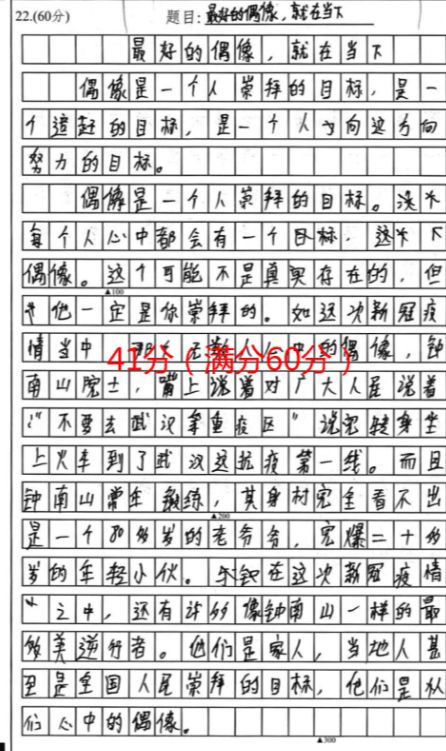 22.(60分)
题目: 最好的偶像,就在当下
最好的偶像,就在当下
偶像是一个人崇拜的目标,是一
个追赶的目标,是一个人方向这方向
努力的目标。
偶像是一个人崇拜的目标。
每个人心中都会有一个目标,
偶像。这个可能不是真实存在的,但
▲100
他一定是你崇拜的。如这次新冠疫
情当中,的偶像,钟
41分(满分60分)
南山院士,嘴上说着对广大人民说着
:“不要去武汉重疫区”说完转身坐
上火车到了武汉这抗疫第一线。而且
钟南山常年锻练,其身材完全看不出
▲200
是一个80多岁的老爷爷,完爆二十多
岁的年轻小伙。在这次新冠疫情
之中,还有许多像钟南山一样的最
美逆行者。他们是家人,当地人甚
至是全国人民崇拜的目标,他们是
们心中的偶像。
▲300